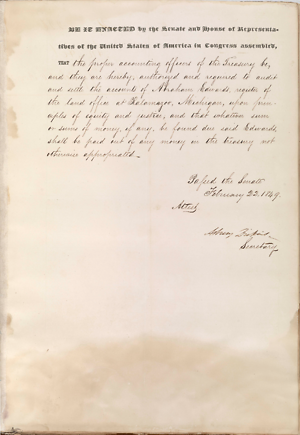 BE IT ENACTED by the Senate and House of Representa-
tives of the United States of America in Congress assembled,
THAT the proper accounting officers of the Treasury be,
and they are hereby, authorized and required to audit
and settle the accounts of Abraham Edwards, register of
the land office at Kalamazoo, Michigan, upon prin-
ciples of equity and justice, and that whatever sum
or sums of money, if any, be found due said Edwards,
shall be paid out of any money in the treasury not
otherwise appropriated.
Passed the Senate
February 22, 1849.
Attest
Asbury Dickins
Secretary